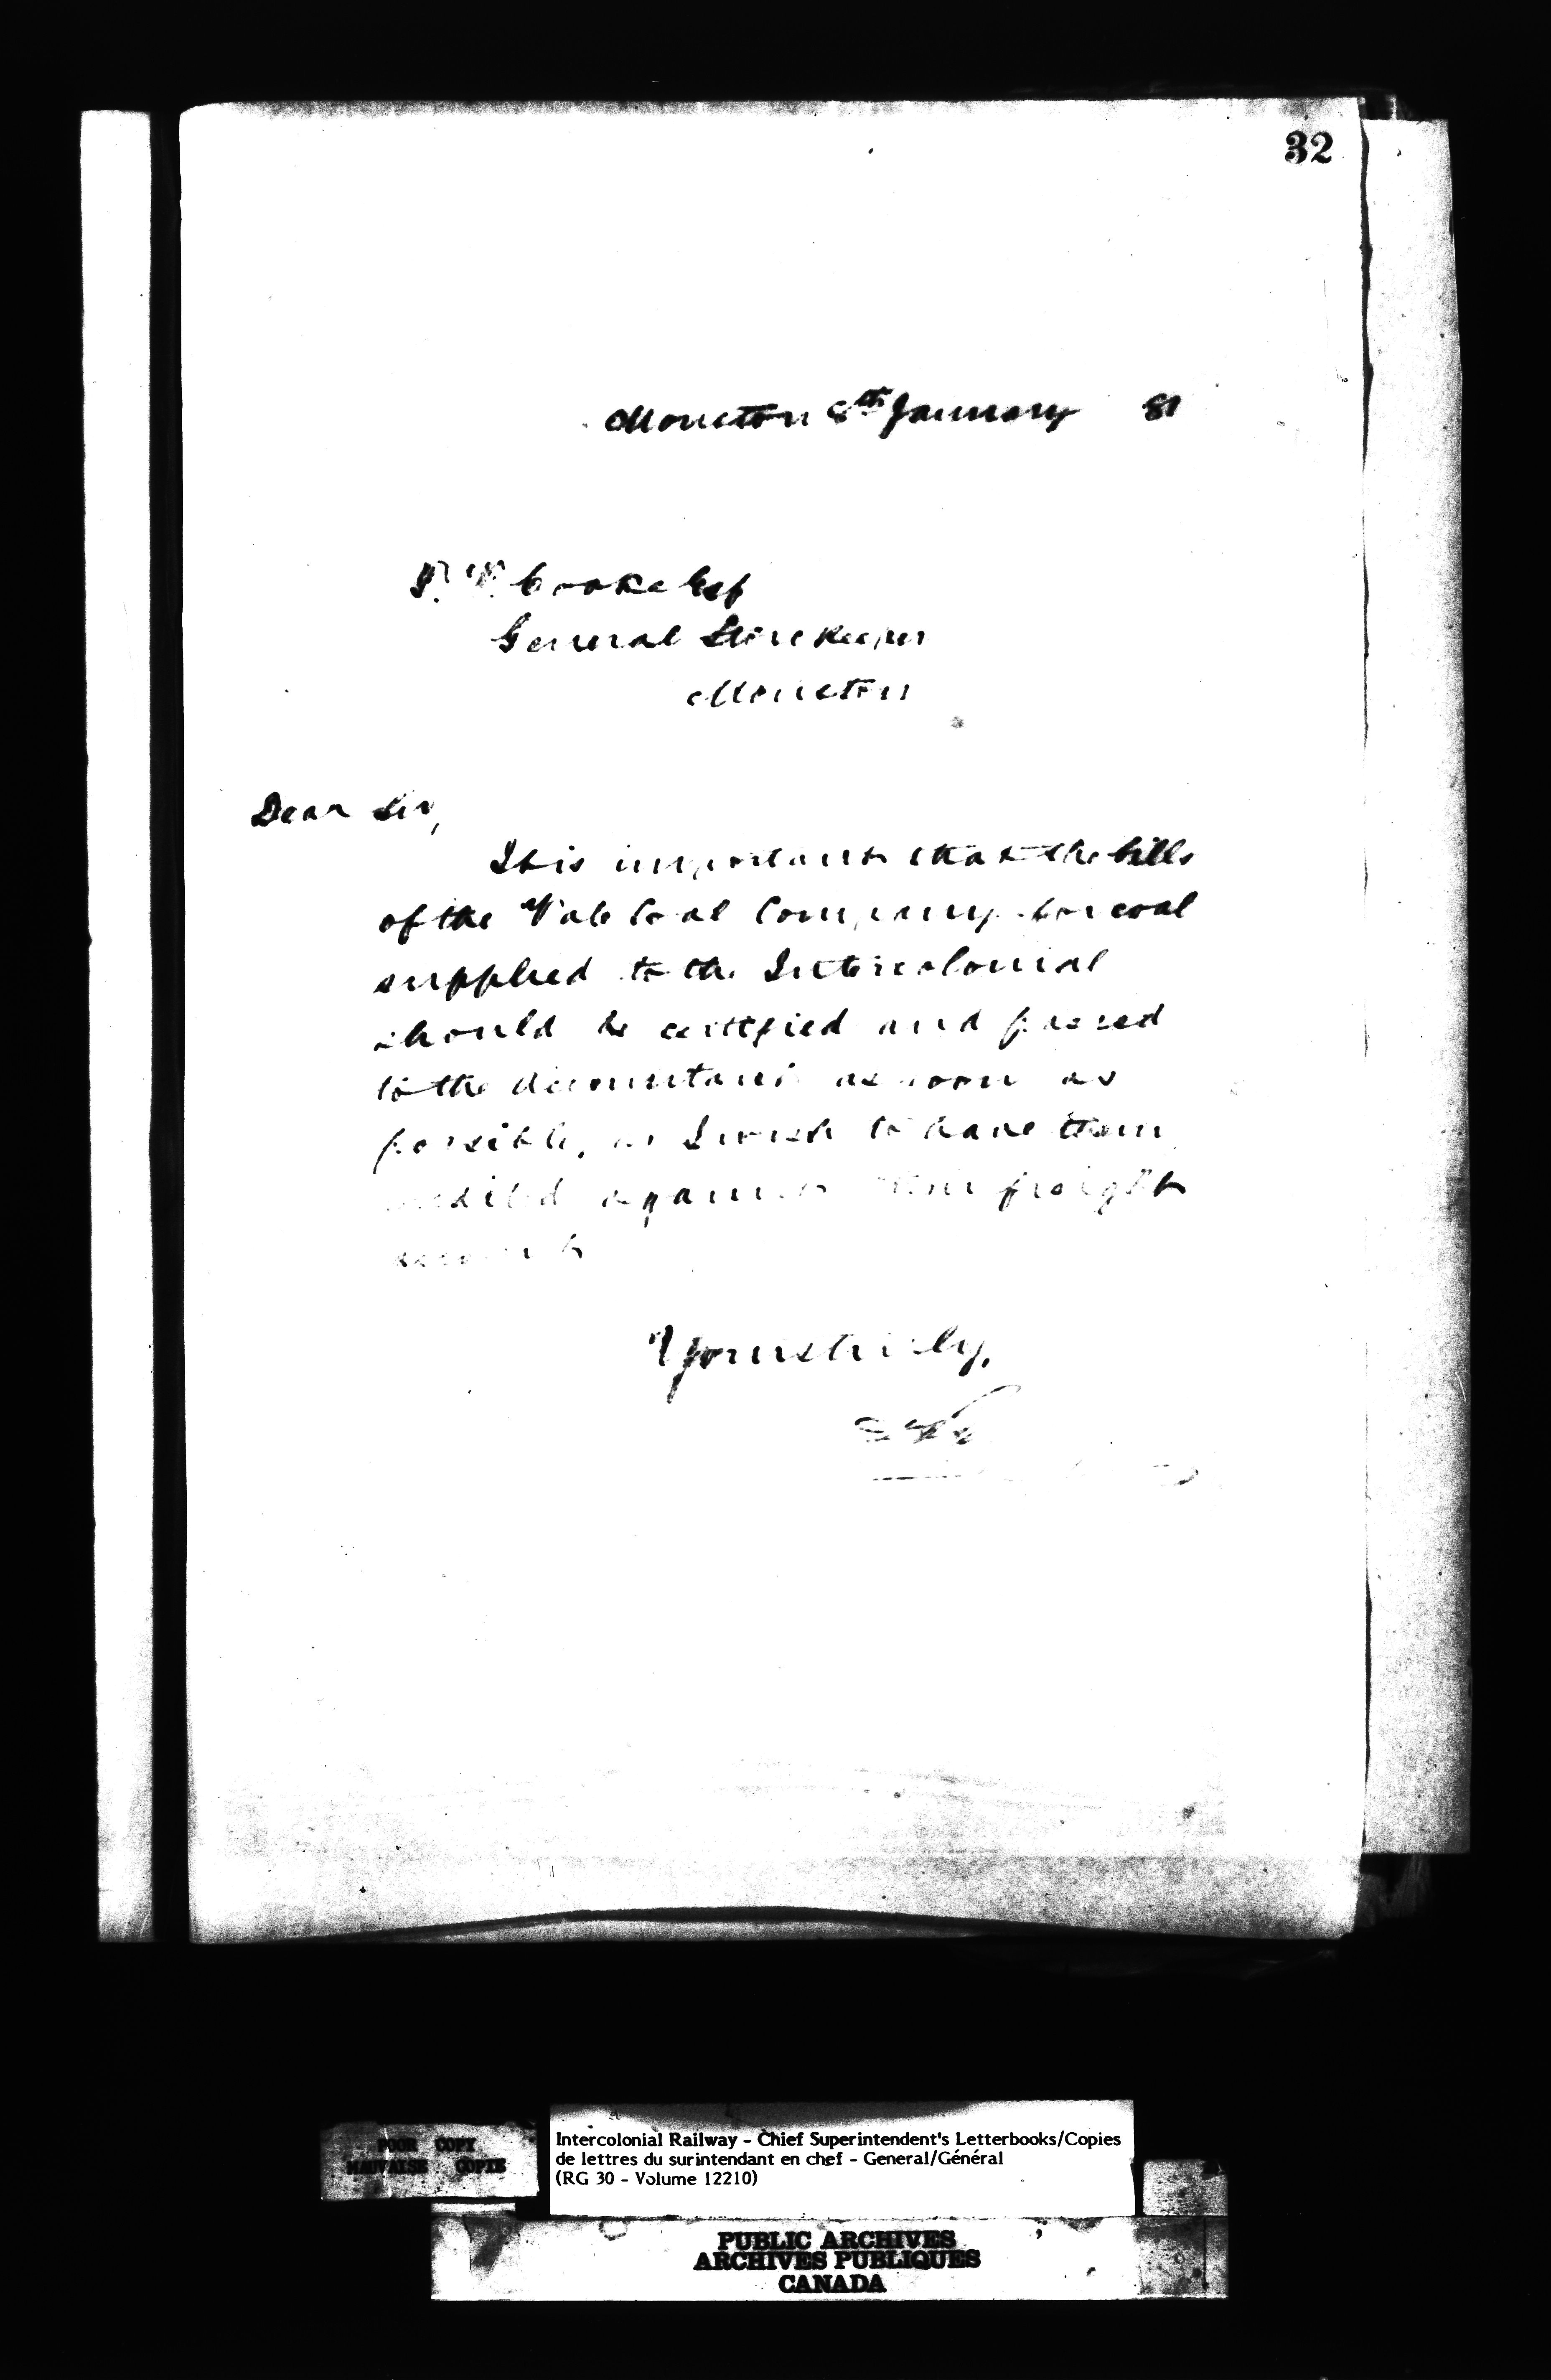 32
Moncton 8th January 81
Cooke Esq
General Storekeeper
Moncton
Dear Sir,
It is important that the bills
of the Vale Coal Company for coal
supplied to the Intercolonial
should be certified and passed
to the Accountant as soon as
possible, as I wish to have them
credited against their freight
account
Yours truly,
POOR COPY
MAUVAISE COPIE
Intercolonial Railway - Chief Superintendent's Letterbooks/Copies
de lettres du surintendant en chef - General/Général
(RG 30 - Volume 12210)
PUBLIC ARCHIVES
ARCHIVES PUBLIQUES
CANADA